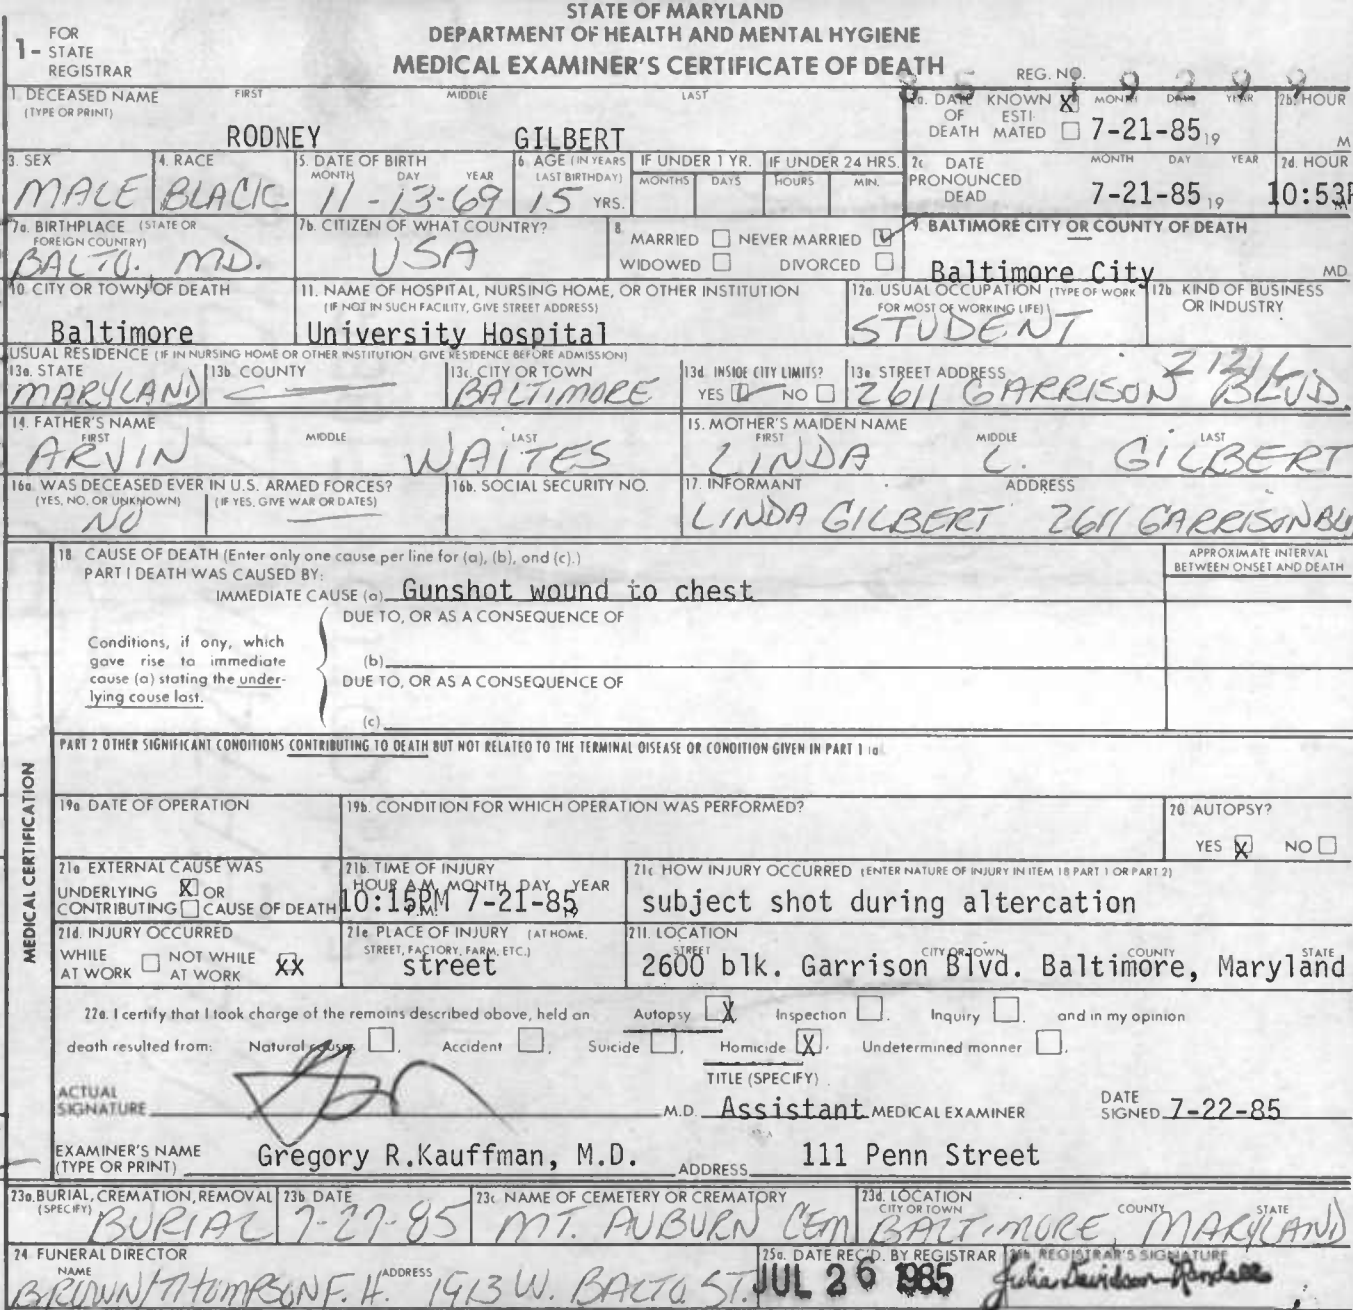 STATE OF MARYLAND
DEPARTMENT OF HEALTH AND MENTAL HYGIENE
MEDICAL EXAMINER'S CERTIFICATE OF DEATH
1- FOR STATE REGISTRAR
REG. NO. 85 19299
1. DECEASED NAME (TYPE OR PRINT) FIRST MIDDLE LAST
RODNEY GILBERT
2a. DATE OF DEATH KNOWN X ESTIMATED MONTH DAY YEAR 7-21-85, 19
2b. HOUR M
3. SEX MALE
4. RACE BLACK
5. DATE OF BIRTH MONTH DAY YEAR 11-13-69
6. AGE (IN YEARS LAST BIRTHDAY) 15 YRS.
IF UNDER 1 YR. MONTHS DAYS
IF UNDER 24 HRS. HOURS MIN.
2c DATE PRONOUNCED DEAD MONTH DAY YEAR 7-21-85, 19
2d. HOUR 10:53P M
7a. BIRTHPLACE (STATE OR FOREIGN COUNTRY) BALTO. MD.
7b. CITIZEN OF WHAT COUNTRY? USA
8. MARRIED NEVER MARRIED WIDOWED DIVORCED
9. BALTIMORE CITY OR COUNTY OF DEATH Baltimore City MD
10. CITY OR TOWN OF DEATH Baltimore
11. NAME OF HOSPITAL, NURSING HOME, OR OTHER INSTITUTION (IF NOT IN SUCH FACILITY, GIVE STREET ADDRESS) University Hospital
12a. USUAL OCCUPATION (TYPE OF WORK FOR MOST OF WORKING LIFE) STUDENT
12b. KIND OF BUSINESS OR INDUSTRY
USUAL RESIDENCE (IF IN NURSING HOME OR OTHER INSTITUTION, GIVE RESIDENCE BEFORE ADMISSION)
13a. STATE MARYLAND
13b. COUNTY
13c. CITY OR TOWN BALTIMORE
13d. INSIDE CITY LIMITS? YES NO
13e. STREET ADDRESS 2611 GARRISON BLVD.
14. FATHER'S NAME FIRST MIDDLE LAST ARVIN WAITES
15. MOTHER'S MAIDEN NAME FIRST MIDDLE LAST LINDA L. GILBERT
16a. WAS DECEASED EVER IN U.S. ARMED FORCES? (YES, NO, OR UNKNOWN) (IF YES, GIVE WAR OR DATES) NO
16b. SOCIAL SECURITY NO.
17. INFORMANT ADDRESS LINDA GILBERT 2611 GARRISON BLV
MEDICAL CERTIFICATION
18 CAUSE OF DEATH (Enter only one cause per line for (a), (b), and (c).)
APPROXIMATE INTERVAL BETWEEN ONSET AND DEATH
PART I DEATH WAS CAUSED BY:
IMMEDIATE CAUSE (a) Gunshot wound to chest
DUE TO, OR AS A CONSEQUENCE OF
Conditions, if any, which gave rise to immediate cause (a) stating the underlying cause last.
(b)
DUE TO, OR AS A CONSEQUENCE OF
(c)
PART 2 OTHER SIGNIFICANT CONDITIONS CONTRIBUTING TO DEATH BUT NOT RELATED TO THE TERMINAL DISEASE OR CONDITION GIVEN IN PART 1 (a
19a DATE OF OPERATION
19b. CONDITION FOR WHICH OPERATION WAS PERFORMED?
20 AUTOPSY? YES X NO
21a EXTERNAL CAUSE WAS UNDERLYING X OR CONTRIBUTING CAUSE OF DEATH
21b. TIME OF INJURY HOUR A.M. P.M. MONTH DAY YEAR 10:15PM 7-21-85
21c HOW INJURY OCCURRED (ENTER NATURE OF INJURY IN ITEM 18 PART 1 OR PART 2) subject shot during altercation
21d. INJURY OCCURRED WHILE AT WORK NOT WHILE AT WORK XX
21e PLACE OF INJURY (AT HOME, STREET, FACTORY, FARM, ETC.) street
21f. LOCATION STREET CITY OR TOWN COUNTY STATE 2600 blk. Garrison Blvd. Baltimore, Maryland
22a. I certify that I took charge of the remains described above, held an Autopsy X, Inspection, Inquiry, and in my opinion
death resulted from: Natural causes, Accident, Suicide, Homicide X, Undetermined manner.
ACTUAL SIGNATURE M.D. TITLE (SPECIFY) Assistant MEDICAL EXAMINER DATE SIGNED 7-22-85
EXAMINER'S NAME (TYPE OR PRINT) Gregory R.Kauffman, M.D. ADDRESS 111 Penn Street
23a. BURIAL, CREMATION, REMOVAL (SPECIFY) BURIAL
23b. DATE 7-27-85
23c NAME OF CEMETERY OR CREMATORY MT. AUBURN CEM
23d. LOCATION CITY OR TOWN COUNTY STATE BALTIMORE, MARYLAND
24 FUNERAL DIRECTOR NAME ADDRESS BROWN/THOMPSON F.H. 1913 W. BALTO ST.
25a. DATE REC'D. BY REGISTRAR JUL 26 1985
25b. REGISTRAR'S SIGNATURE Julia Davidson-Randall